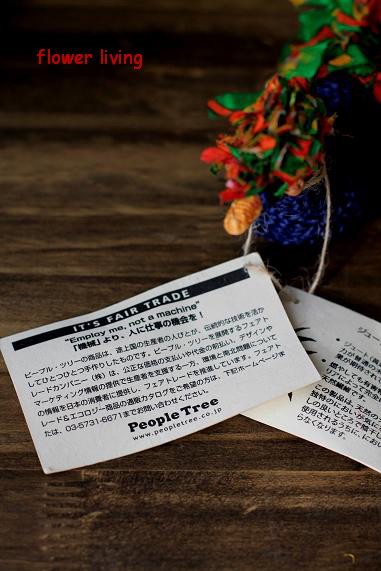 flower living
IT'S FAIR TRADE
"Employ me, not a machine"
「機械」より、人に仕事の機会を！
ピープル・ツリーの商品は、途上国の生産者の人びとが、伝統的な技術を活か
してひとつひとつ手作りしたものです。ピープル・ツリーを展開するフェアト
レードカンパニー（株）は、公正な価格の支払いや代金の前払い、デザインや
マーケティング情報の提供で生産者を支援する一方、環境と南北問題について
の情報を日本の消費者に提供し、フェアトレードを推進しています。フェアト
レード＆エコロジー商品の通販カタログをご希望の方は、下記ホームページま
たは、03-5731-6671までお問い合わせください。
People Tree
www.peopletree.co.jp
この製品は、天然の